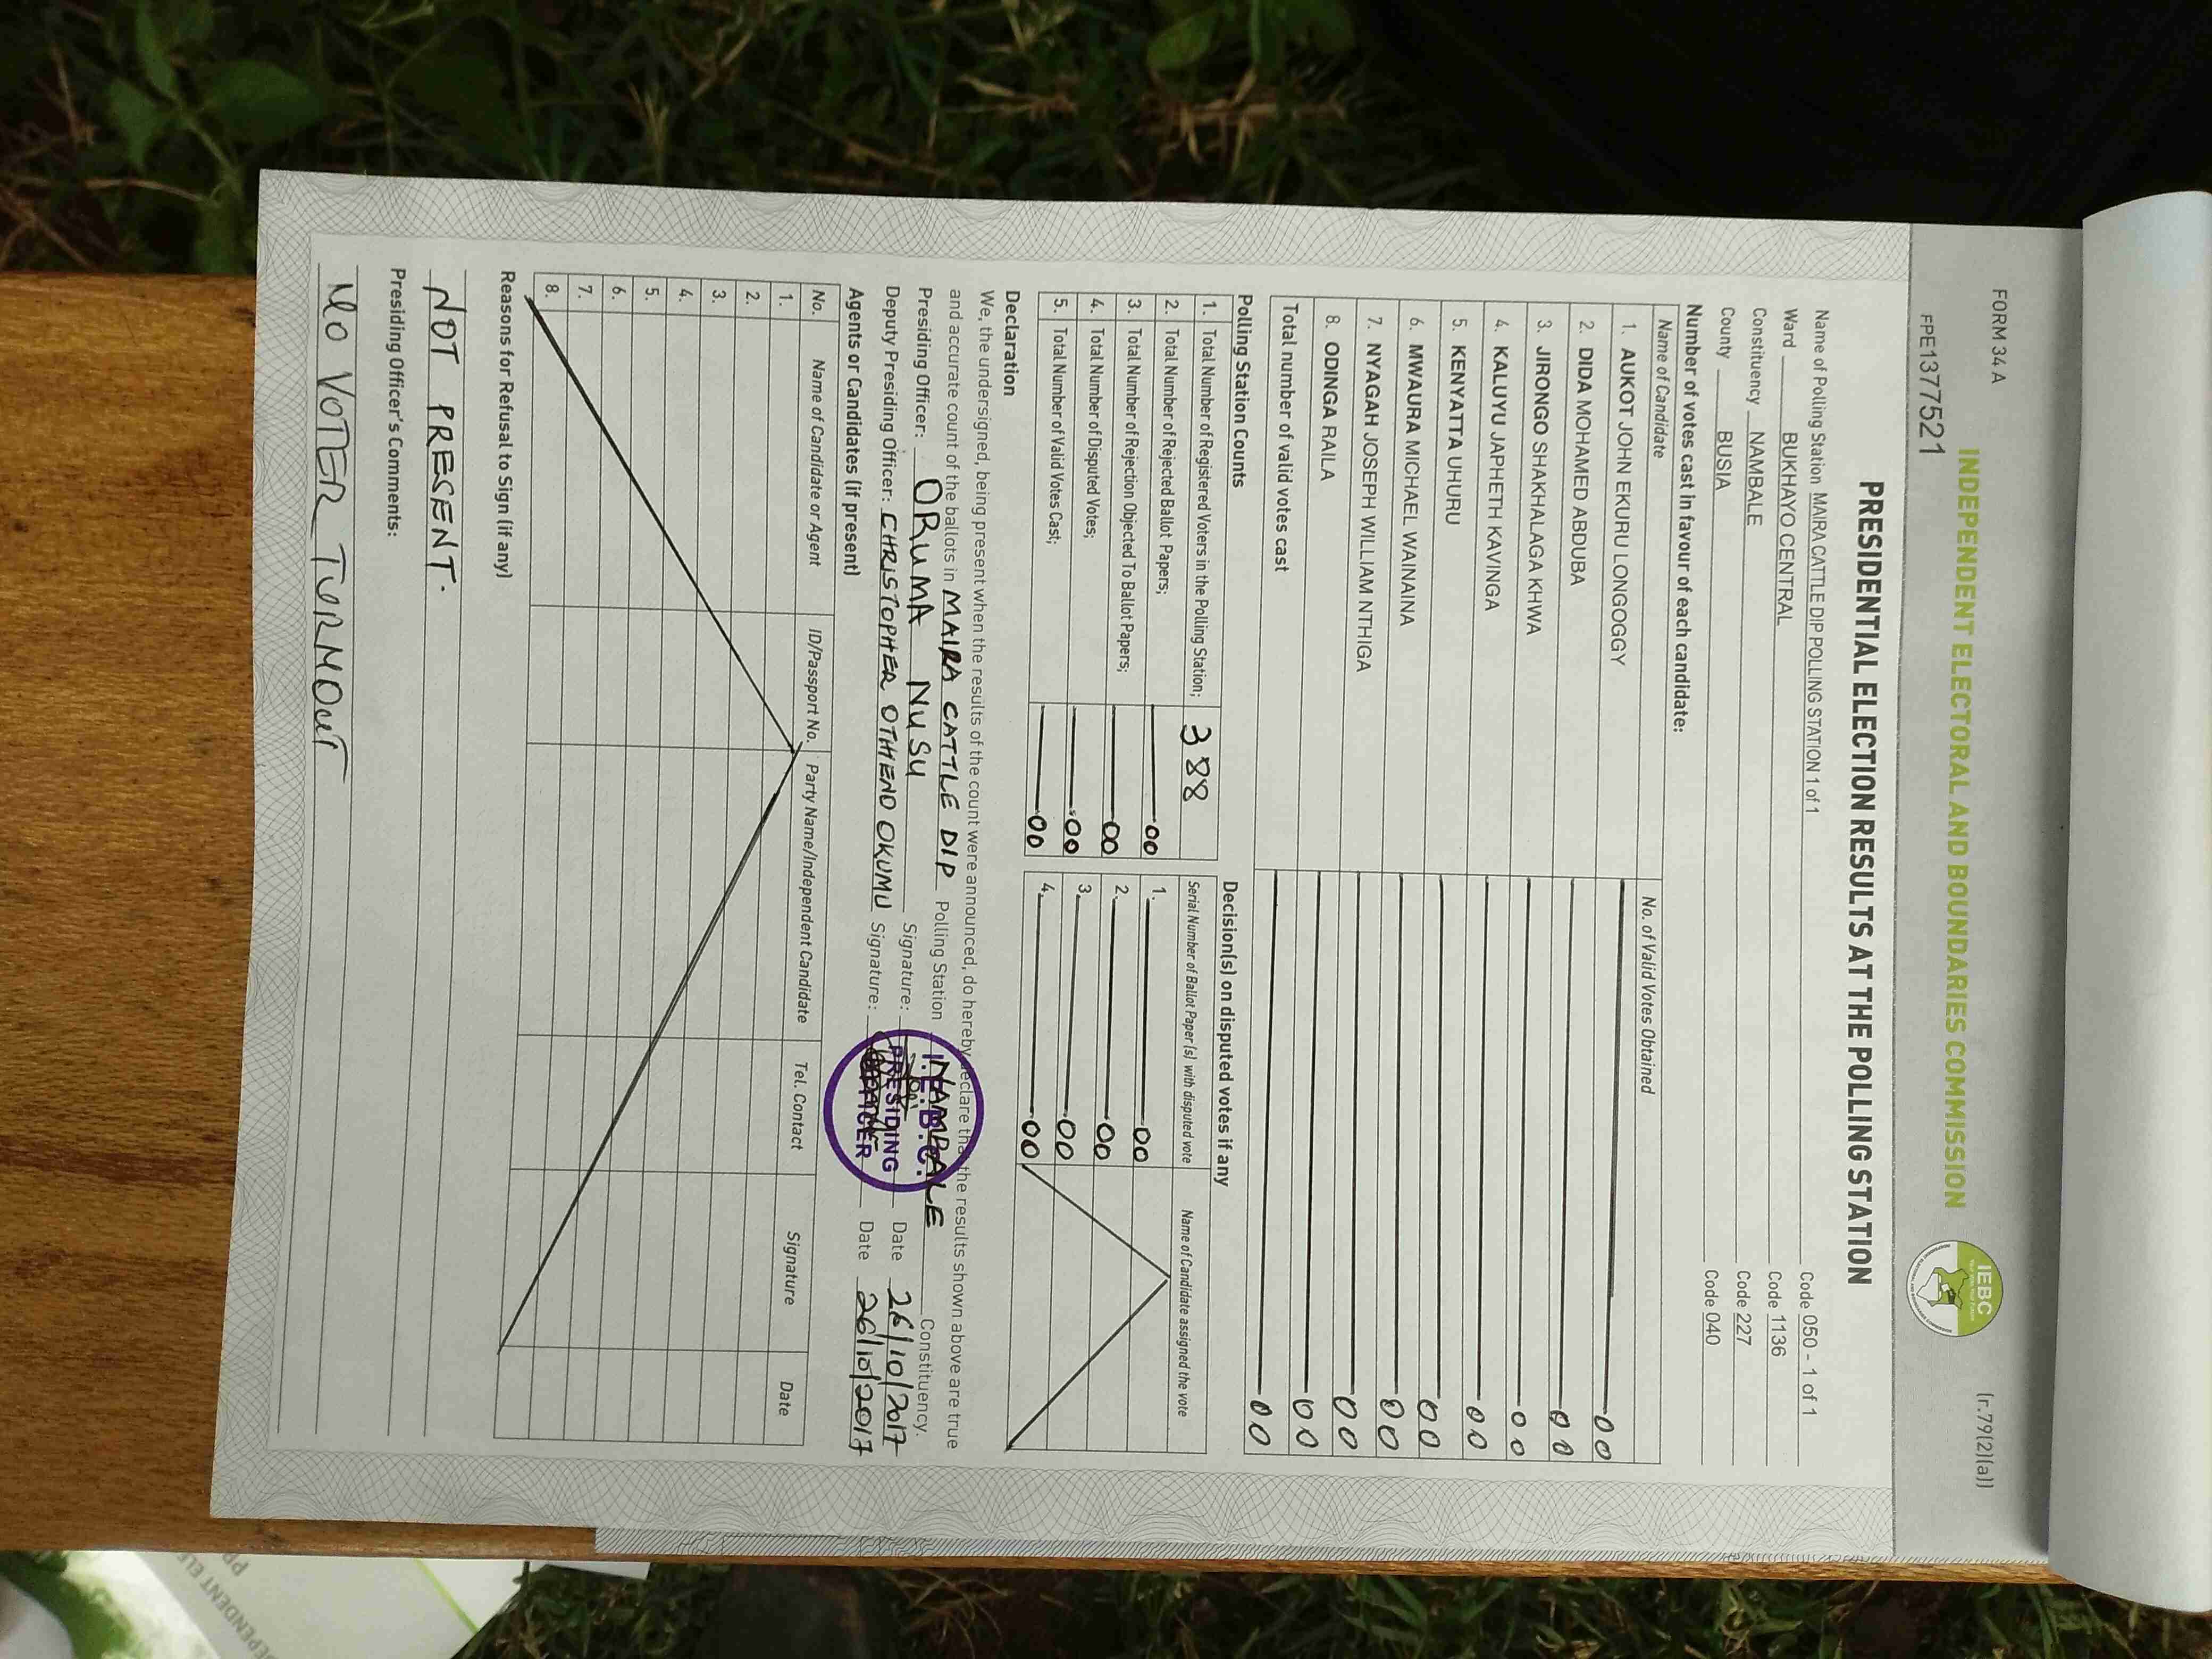 FORM 34 A
(r.79(2)(a))
INDEPENDENT ELECTORAL AND BOUNDARIES COMMISSION
IEBC
FPE1377521
PRESIDENTIAL ELECTION RESULTS AT THE POLLING STATION
Name of Polling Station MAIRA CATTLE DIP POLLING STATION 1 of 1 Code 050 - 1 of 1
Ward BUKHAYO CENTRAL Code 1136
Constituency NAMBALE Code 227
County BUSIA Code 040
Number of votes cast in favour of each candidate:
Name of Candidate No. of Valid Votes Obtained
1. AUKOT JOHN EKURU LONGOGGY 00
2. DIDA MOHAMED ABDUBA 00
3. JIRONGO SHAKHALAGA KHWA 00
4. KALUYU JAPHETH KAVINGA 00
5. KENYATTA UHURU 00
6. MWAURA MICHAEL WAINAINA 00
7. NYAGAH JOSEPH WILLIAM NTHIGA 00
8. ODINGA RAILA 00
Total number of valid votes cast 00
Polling Station Counts
1. Total Number of Registered Voters in the Polling Station; 388
2. Total Number of Rejected Ballot Papers; 00
3. Total Number of Rejection Objected To Ballot Papers; 00
4. Total Number of Disputed Votes; 00
5. Total Number of Valid Votes Cast; 00
Decision(s) on disputed votes if any
Serial Number of Ballot Paper (s) with disputed vote Name of Candidate assigned the vote
1. 00
2. 00
3. 00
4. 00
Declaration
We, the undersigned, being present when the results of the count were announced, do hereby declare that the results shown above are true
and accurate count of the ballots in MAIRA CATTLE DIP Polling Station NAMBALE Constituency.
Presiding Officer: ORUMA NUSU Signature: Date 26/10/2017
Deputy Presiding Officer: CHRISTOPHER OTHIENO OKUMU Signature: Date 26/10/2017
I.E.B.C.
PRESIDING
OFFICER
Agents or Candidates (if present)
No. Name of Candidate or Agent ID/Passport No. Party Name/Independent Candidate Tel. Contact Signature Date
1.
2.
3.
4.
5.
6.
7.
8.
Reasons for Refusal to Sign (if any)
NOT PRESENT.
Presiding Officer's Comments:
NO VOTER TURMOUT